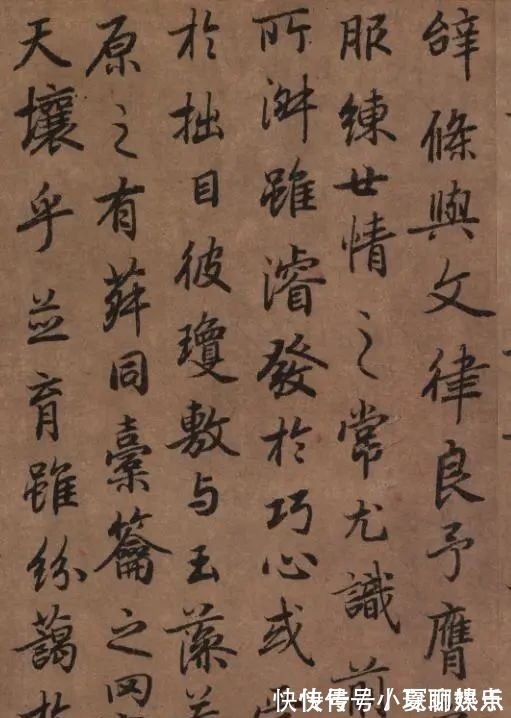 辭條與文律良予膺
服練世情之常尤識前
所淑雖濬發於巧心或
於拙目彼瓊敷与玉藻若
原之有菽同橐籥之罔
天壤乎並育雖紛藹於